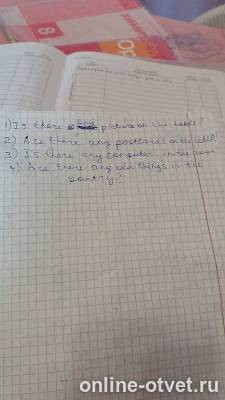 1) Is there any picture on the table?
2) Are there any postcards on the table?
3) Is there any computer in the room
4) Are there any old things in the
pantry?
online-otvet.ru